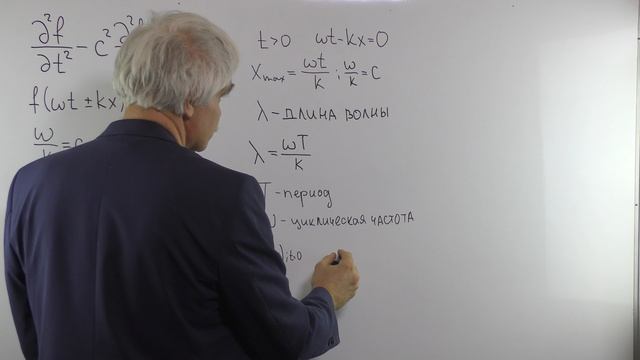 ∂²f/∂t² - c² ∂²f
f(ωt ± kx,
ω/k = c
t>0 ωt-kx=0
Xmax = ωt/k ; ω/k = c
λ - длина волны
λ = ωT/k
T - период
ω - циклическая частота